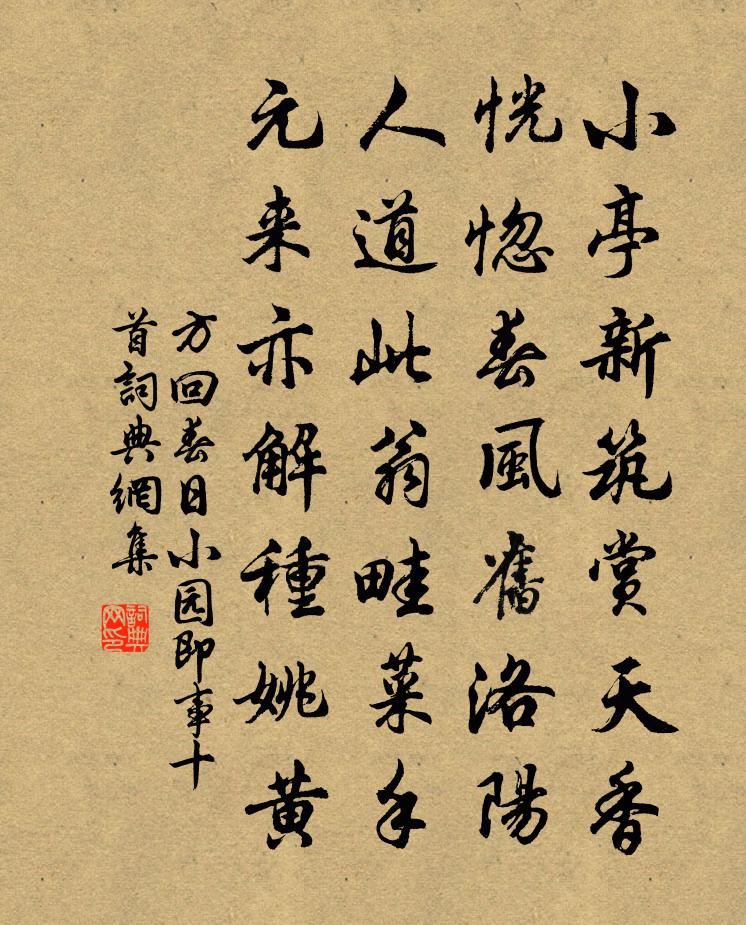 小亭新筑赏天香
恍惚春風舊洛陽
人道此翁畦菜手
元来亦解種姚黄
方回春日小园即事十
首詞典網集
詞典网印